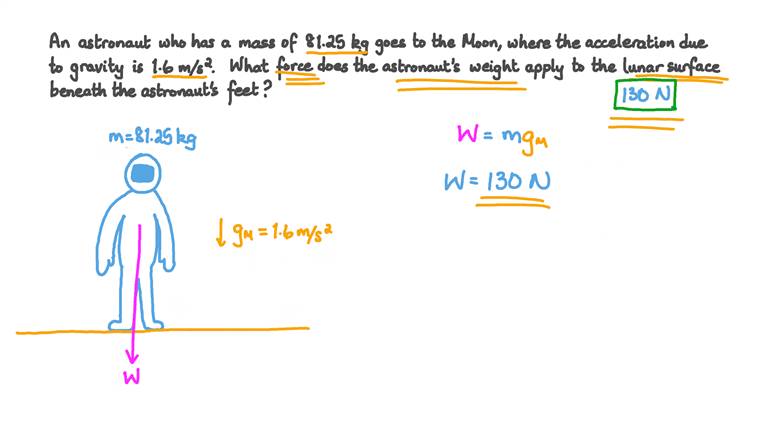 An astronaut who has a mass of 81.25 kg goes to the Moon, where the acceleration due
to gravity is 1.6 m/s². What force does the astronaut's weight apply to the lunar surface
beneath the astronaut's feet?
130 N
m = 81.25 kg
W = mg_M
W = 130 N
↓ g_M = 1.6 m/s²
W